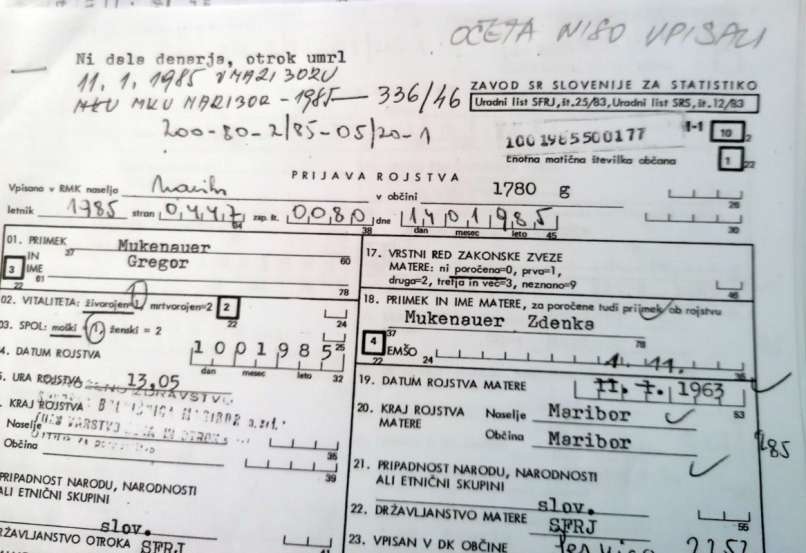 OČETA NISO VPISALI
Ni dala denarja, otrok umrl
11. 1. 1985 V MARIBORU
MKU MARIBOR - 1985 — 336/46
200-80-2/85-05/20-1
ZAVOD SR SLOVENIJE ZA STATISTIKO
Uradni list SFRJ, št. 25/83, Uradni list SRS, št. 12/83
1001985500177
1-1 10 2
Enotna matična številka občana
1 22
PRIJAVA ROJSTVA
Vpisano v RMK naselja
v občini 1780 g
26
letnik 1985 stran 0447 zap. št. 0080 dne 1401985
34 38 dan mesec leto 45
30
01. PRIIMEK Mukenauer
37 60
IN
3 IME Gregor
22 61 78
17. VRSTNI RED ZAKONSKE ZVEZE
MATERE: ni poročena=0, prva=1,
druga=2, tretja in več=3, neznano=9
46
02. VITALITETA: živorojen=1, mrtvorojen=2 2
22 24
03. SPOL: moški = 1, ženski = 2
25
18. PRIIMEK IN IME MATERE, za poročene tudi priimek ob rojstvu
Mukenauer Zdenka
37 78
4 EMŠO
22 24 36
4. DATUM ROJSTVA 1001985
dan mesec leto 32
1. 11.
19. DATUM ROJSTVA MATERE 11. 7. 1963
53
5. URA ROJSTVA 13,05
KRAJ ROJSTVA
Naselje
35
Občina
39
20. KRAJ ROJSTVA
MATERE
Naselje Maribor
Občina Maribor
985
PRIPADNOST NARODU, NARODNOSTI
ALI ETNIČNI SKUPINI
slov.
21. PRIPADNOST NARODU, NARODNOSTI
ALI ETNIČNI SKUPINI
slov.
55
22. DRŽAVLJANSTVO MATERE SFRJ
DRŽAVLJANSTVO OTROKA SFRJ
41
23. VPISAN V DK OBČINE